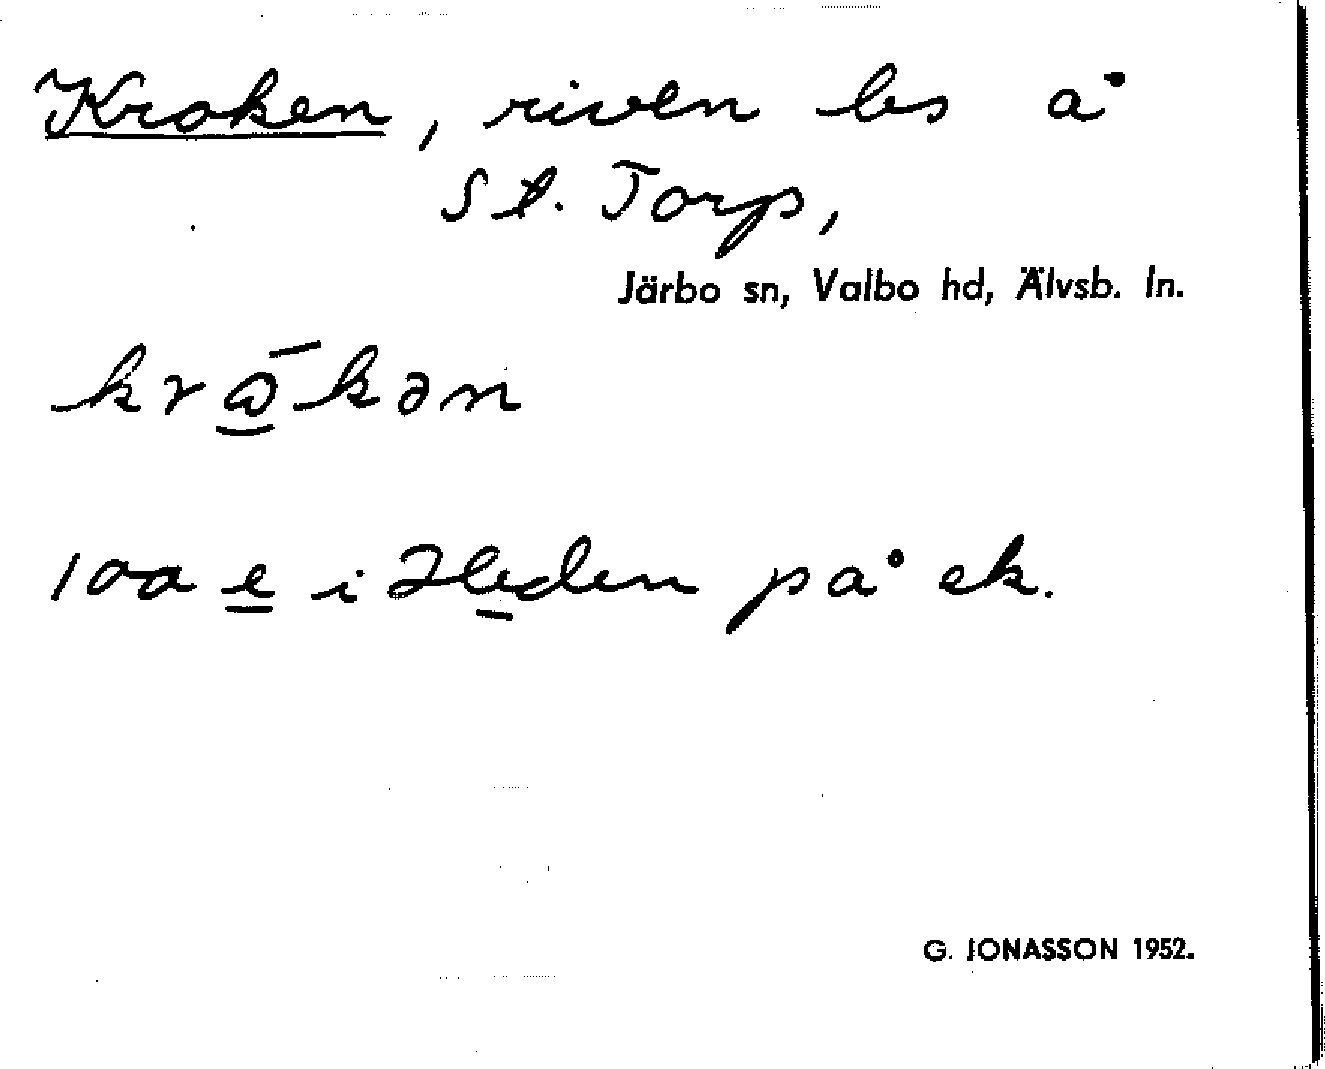 Kroken, riven les å
St. Torp,
Järbo sn, Valbo hd, Älvsb. ln.
krå̄kən
100 e i Heden på ek.
G. JONASSON 1952.